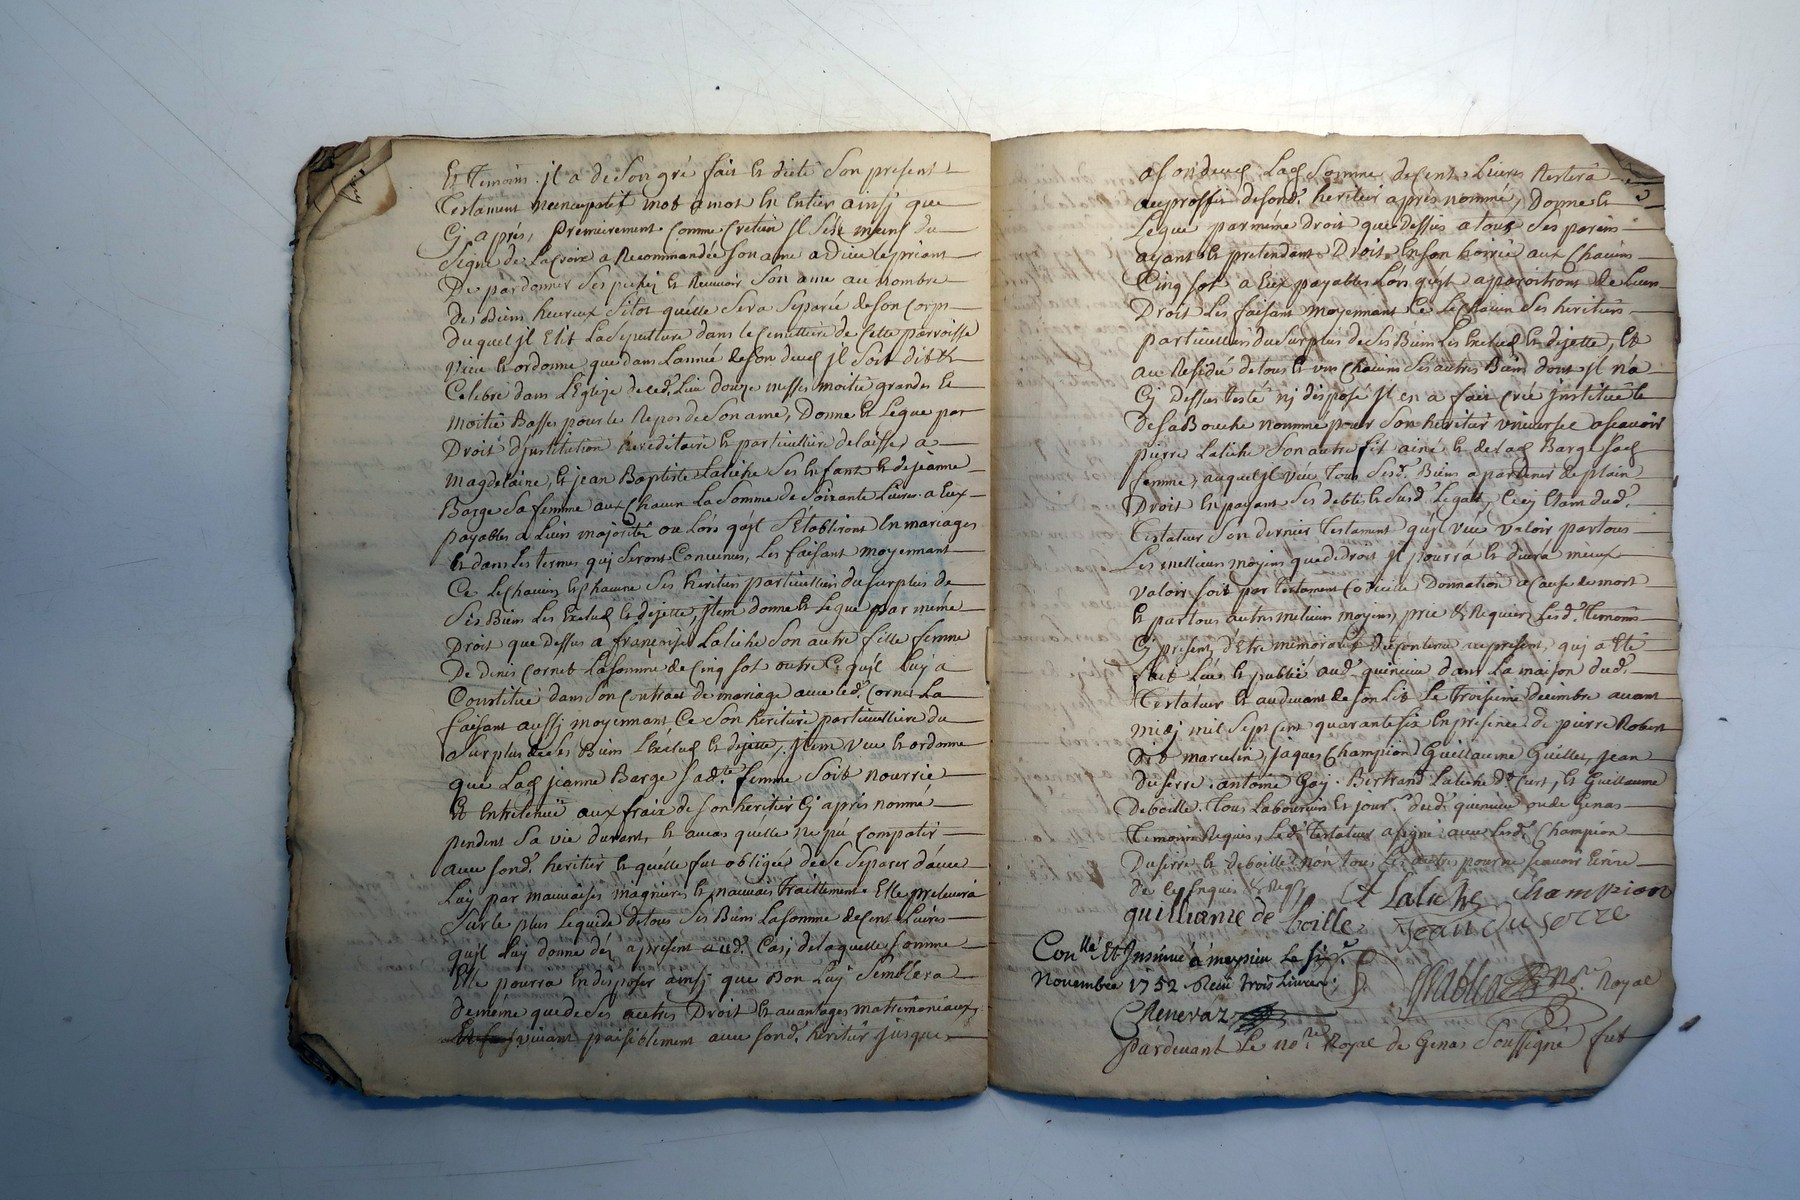 Et Temoins il a de son gré fait et dicté son present
Testament nuncupatif mot a mot en Entier ainsj que
Cj aprés, premierement Comme Cretien Jl s'est muni du
Signe de la Croix a Recommandée son ame a dieu le priant
De pardonner Ses pechez et Recevoir Son ame au nombre
des Bien heureux sitot quélle Sera Separée de son Corps
duquel jl Elit La Sepulture dans le Cimettiere de Cette parroisse
veut et ordonne que dans Lannée de son deces jl Soit dit et
Celebré dans L'Eglize de ced. Lieu douze messes moitié grandes et
moitié Basses pour le Repos de Son ame, Donne et Legue par
Droit djnstitution hereditaire et particulliere delaisse a
magdelaine, et jean Baptiste Latiche Ses Enfants et de jeanne
Barge Sa femme aux Chacun La Somme de Soixante Livres a Eux
payables a Leurs majorité ou Lors qújl S'Etabliront En mariages
et dans les termes quj Seront Convenus, Les faisant moyennant
Ce Les Chacuns Et Chacune Ses heritiers particulliers du surplus de
Ses Biens Les Exclud et dejette, jtem donne et Legue par méme
Droit que Dessus a françoise Latiche Son autre fille femme
De denis Cornet La somme de Cinq Sol outre Ce qújl Luy a
Constitué dans Son Contract de mariage avec led. Cornet La
faisant aussj moyennant Ce Son heritiere particulliere du
Surplus de Ses Biens L'exclud et dejette, jtem veut et ordonne
que Lad jeanne Barge Sad.te femme Soit nourrie
Et Entretenuë aux fraix de Son heritier Cj aprés nommé
pendent Sa vie durant, et aucas quélle ne pût Compatir
avec Sond. heritier et quélle fut obligée de se Separer d'avec
Luy par mauvaises magnieres et mauvais Traittements Elle prelevera
Sur le plus Liquide de tous Ses Biens La somme de Cent Livres
qújl Luy donne dés apresent aud. Cas, de laquelle Somme
Elle pourra En disposer ainsj que Bon Luy Semblera
de méme que de Ses autres Droit et avantages matrimoniaux,
vivant paisiblement avec Sond. heritier jusques
a Son deces Lad Somme de Cent Livres Restera
auproffit de Sond. heritier aprés nommé, Donne et
Legue par méme droit que dessus a tous Ses parens
ayant et pretendant Droit En son hoirie aux Chacuns
Cinq Sol a Eux payables Lors qújl aparoitront de Leurs
Droit Les faisant moyennant Ce Les Chacun Ses heritiers
particulliers du Surplus de Ses Biens Les Exclud Et dejette, Et
au Residû de tous Et uns Chacuns Ses autres Biens dont jl n'a
Cj dessus testé nj disposé Jl en a fait Créé jnstitué et
De Sa Bouche nommé pour Son heritier universel a scavoir
pierre Latiche Son autre fils ainé Et de Lad Barge Sad
femme, auquel jl veut Tous Sesd. Biens apartenir de plain
Droit En payant Ses debtes Et Susd. Legats, Ceci Etant dud.
Testateur Son dernier Testament qújl veut valoir partous
Les meilleurs moyens que de droit jl pourra et devra mieux
valoir Soit par testament Codicille Donnation a Cause de mort
Et partous autres meilleurs moyens, prie et Requier Lesd. Temoins
Cj presents d'Etre memoratif deposition au present, quj a Eté
fait Lû et publié aud. quincieu dans La maison dud.
Testateur et audevant de Son Lit Le Troisieme decembre avant
midj mil Sept Cent quarante six En présence de pierre Robert
dit marcelin, jaques Champion Guillaume Guillet, jean
duserre, antoine Gay Bertrand Latiche et Guillaume
Deboille Tous Laboureurs et jour. dud. quincieu ou de Genas
Temoins Requis, Led. Testateur a signé avec Lesd. Champion
Duserre et deboille, nón tous Les autres pour ne Scavoir Ecrire
de Ce Enquis et Reqs
L Latiche Champion
guilliame de boille Jean duserre
Con.llé Et Insinué á meyzieu Le six.e
Novembre 1752 Receu trois Livres
Chenevaz
No.re Royal
pardevant Le no.re Royal de Genas Soussigné fut